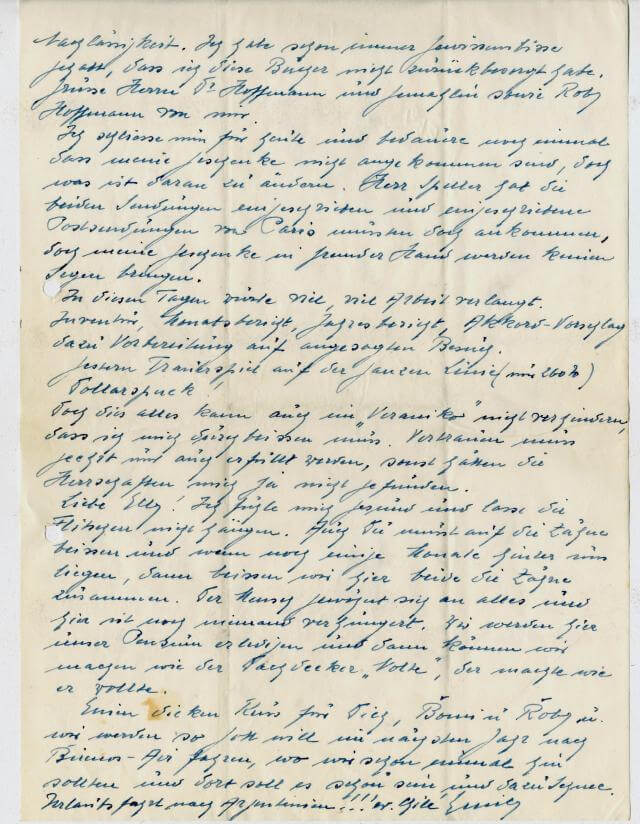 Nachlässigkeit. Ich habe schon immer Gewissensbisse
gehabt, dass ich diese Bücher nicht zurückbesorgt habe.
Grüsse Herrn Dr Hoffmann und Gemahlin sowie Roby
Hoffmann von mir.
Ich schliesse nun für heute und bedauere noch einmal
dass meine Geschenke nicht angekommen sind, doch
was ist daran zu ändern. Herr Speller hat die
beiden Sendungen eingeschrieben und eingeschriebene
Postsendungen von Paris müssten doch ankommen,
doch meine Geschenke in fremder Hand werden keinen
Segen bringen.
In diesen Tagen wurde viel, viel Arbeit verlangt.
Inventur, Monatsbericht, Jahresbericht, Akkord-Vorschlag
dazu Vorbereitung auf angesagten Besuch.
Gestern Trauerspiel auf der ganzen Linie (nur 260%)
Doch dies alles kann auch ein nicht verhindern,
dass ich mich durchbeissen muss. Vertrauen muss
geehrt und auch erfüllt werden, sonst hätten die
Herrschaften mich ja nicht gefunden.
Liebe Elly! Ich fühle mich gesund und lasse die
nicht hängen. Auch Du musst auf die Zähne
beissen und wenn noch einige Monate hinter uns
liegen, dann beissen wir hier beide die Zähne
zusammen. Der Mensch gewöhnt sich an alles und
hier ist noch niemand verhungert. Wir werden hier
unser Pensum erledigen und dann können wir
machen wie der Dachdecker „Volte“, der machte wie
er wollte.
Einen dicken Kuss für Dich, Bomi u Roby u.
wir werden so Gott will im nächsten Jahr nach
Buenos-Air fahren, wo wir schon einmal hin
sollten und dort soll es schön sein und dazu
fahrt nach Argentinien!!!